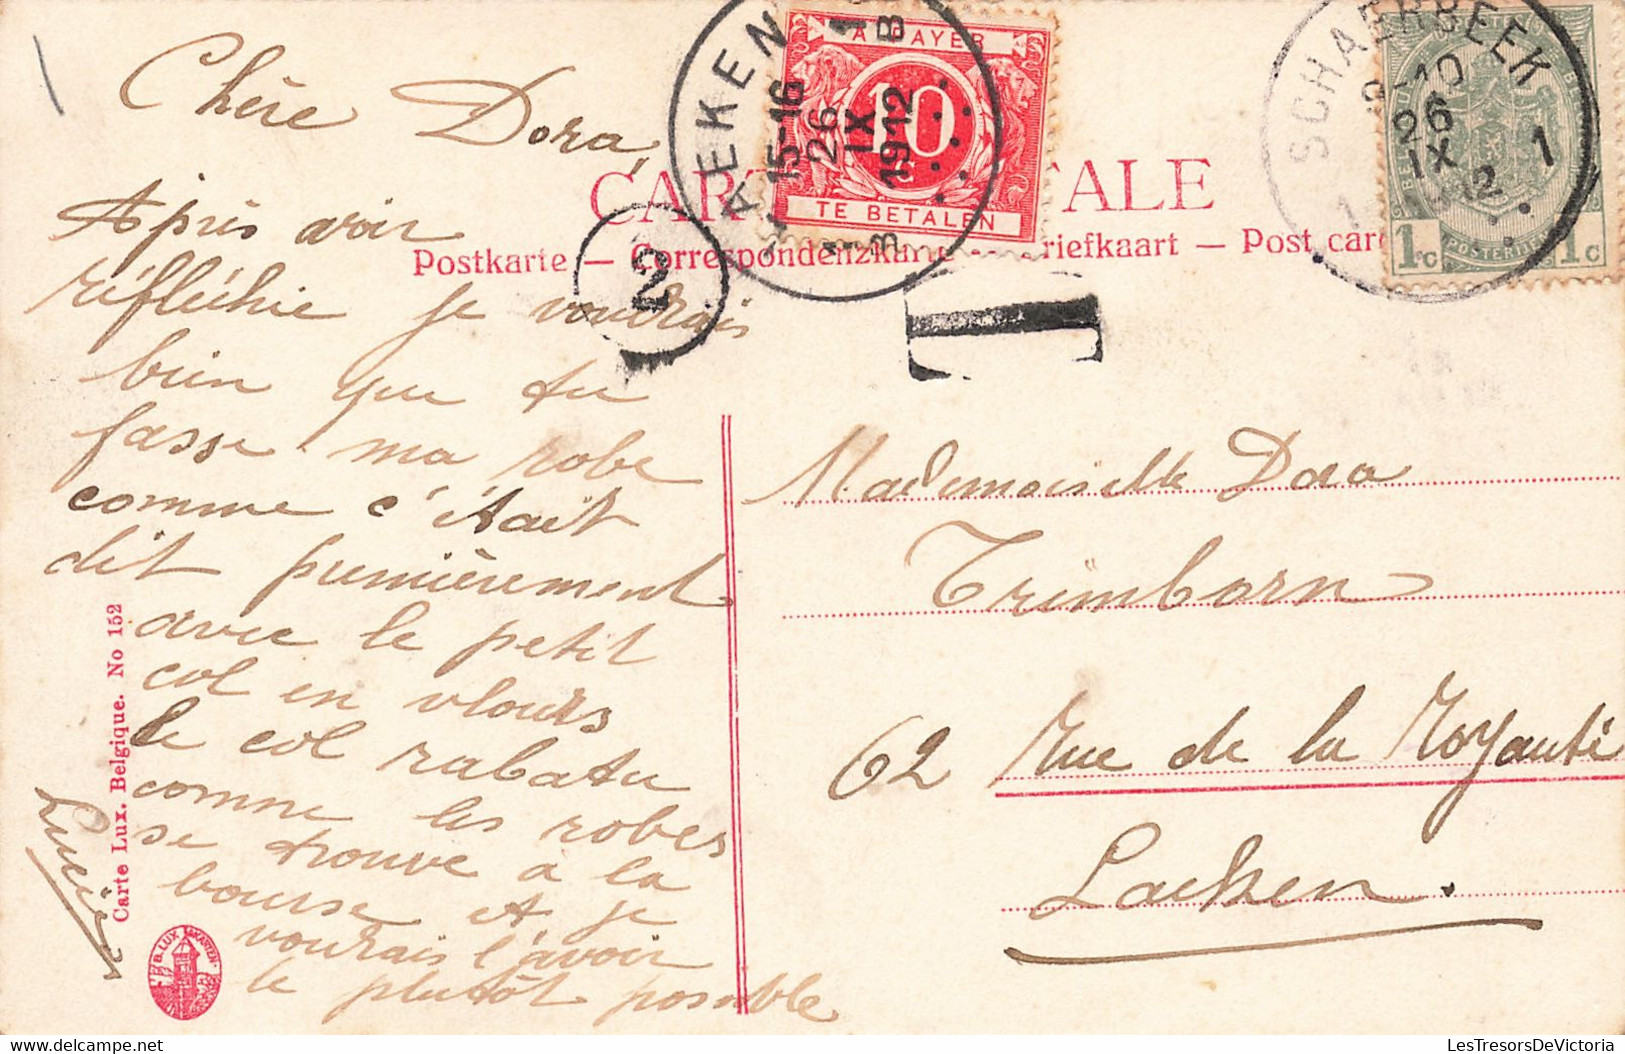 Chère Dora,
Après avoir
réfléchie je voudrais
bien que tu
fasse ma robe
comme c'était
dit premièrement
avec le petit
col en vlours
le col rabatu
comme les robes
se trouve a la
bourse et je
voudrais l'avoir
le plutôt possible
Lucie
Carte Lux. Belgique. No 152
B. LUX KARTEN
CARTE POSTALE
Postkarte — Correspondenzkarte — Briefkaart — Post card
2
T
AEKEN
15-16
26
IX
1912
A PAYER
10
c
TE BETALEN
SCHAERBEEK
26
IX
1
1c
1c
Mademoiselle Dora
Trimborn
62 Rue de la Royauté
Laeken.
LesTresorsDeVictoria.com